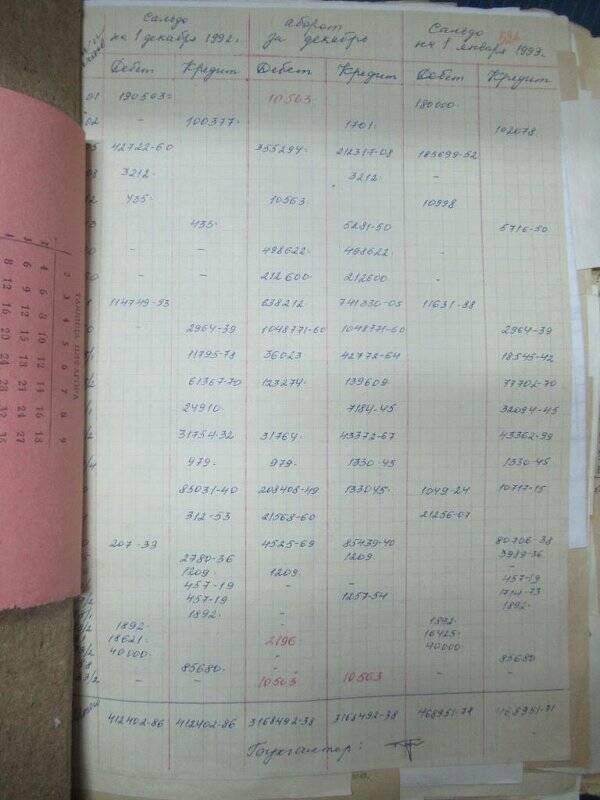 Сальдо на 1 декабря 1992г. оборот за декабрь Сальдо на 1 января 1993г.
Дебет Кредит Дебет Кредит Дебет Кредит
01 190563= 10563 180000-
02 - 100377- 1701- 102078
42722-60 355294- 212317-08 185699-52
3212- 3212- -
435- 10563 10998
435- 5281-50 5716-50
- - 498622- 498622- -
- - 212600- 212600 -
114749-53 638212 741330-05 11631-88
2964-39 1048771-60 1048771-60 2964-39
11795-78 36023 42772-64 18545-42
61367-70 123274- 139609 77702-70
24910- 7184-45 32094-45
31754-32 31764- 43372-67 43362-99
979- 979- 1330-45 1330-45
85031-40 208408-49 133045- 1049-24 10717-15
312-53 21568-60 21256-07
207-33 4525-69 85439-40 80706-38
2780-36 1209- 3989-36
1209- 1209 -
457-19 - - 457-19
457-19 1257-54 1714-73
1892- - 1892-
1892- - 1892-
18621- 2196- 16425-
40000- - 40000-
85680- - 85680
- - 10563 10563 - -
412402-86 412402-86 3168492-38 3168492-38 468951-71 468951-71
Гл.бухгалтер:
ТАБЛИЦА ПИФАГОРА
2 3 4 5 6 7 8 9
4 6 8 10 12 14 16 18
6 9 12 15 18 21 24 27
8 12 16 20 24 28 32 36